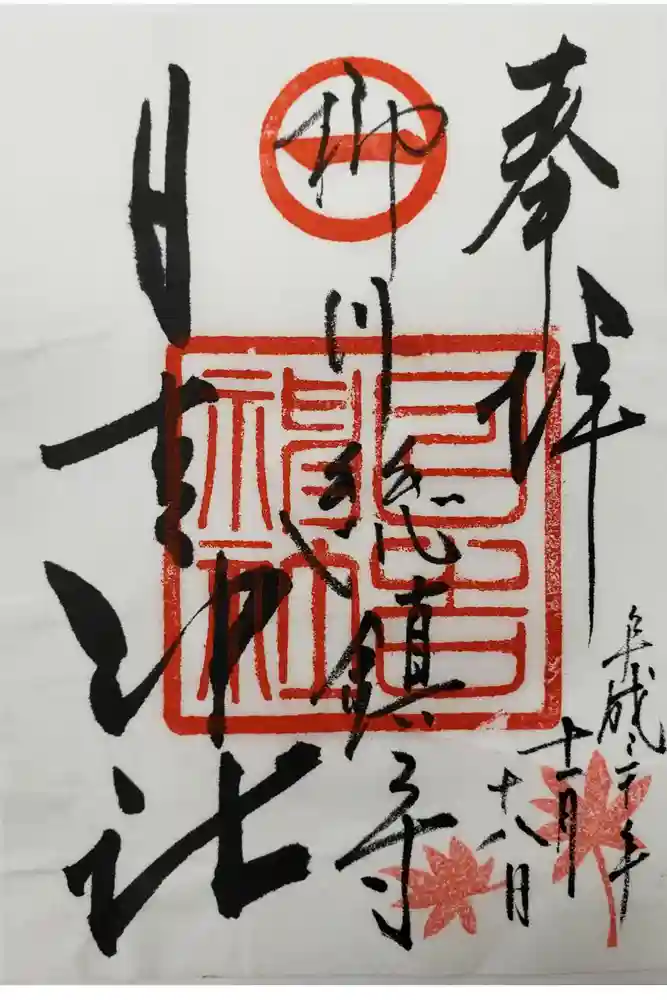 奉拝
平成三十年
十一月
十八日
柳川総鎮守
日吉神社
日吉
神社